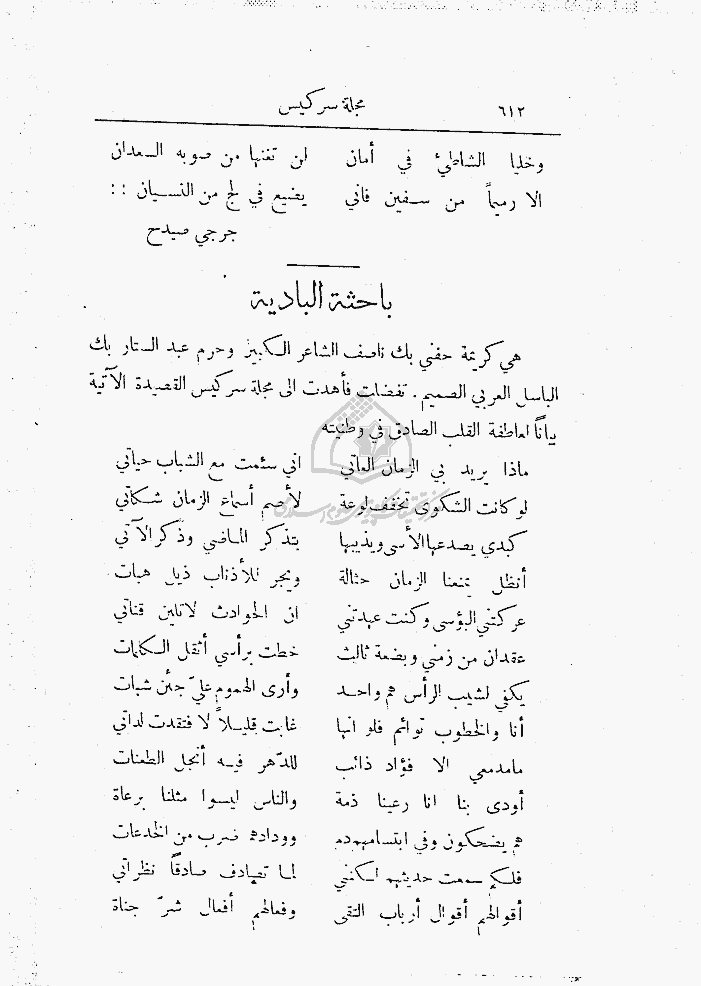 ٦١٢ مجلة سركيس
وخليا الشاطئ في أمان لن تغنها من صوبه السعدان
الا رميماً من سفين فاني يضيع في لج من النسيان : :
جرجي صيدح
باحثة البادية
هي كريمة حفني بك ناصف الشاعر الكبير وحرم عبد الستار بك
الباسل العربي الصميم . تفضلت فأهدت الى مجلة سركيس القصيدة الآتية
بياناً لعاطفة القلب الصادق في وطنيته
ماذا يريد بي الزمان العاتي اني سئمت مع الشباب حياتي
لو كانت الشكوى تخفف لوعة لأصم أسماع الزمان شكاتي
كبدي يصدعها الأسى ويذيبها بتذكر الماضي وذكر الآتي
أنظل تمنعنا الزمان حثالة ويجر للأذناب ذيل هبات
عركتني البؤسى وكنت عهدتني ان الحوادث لا تلين قناتي
عقدان من زمني وبضعة ثالث خطت برأسي أثقل الكلمات
يكفي لشيب الرأس هم واحد وأرى الهموم عليّ جئن شبات
أنا والخطوب توائم فلو انها غابت قليلاً لافتقدت لداتي
ما مدمعي الا فؤاد ذائب للدهر فيه أنجل الطعنات
أودى بنا انا رعينا ذمة والناس ليسوا مثلنا برعاة
هم يضحكون وفي ابتسامهم دم وودادهم ضرب من الخدعات
فلكم سمعت حديثهم لكنني لما تصادف صادقاً نظراتي
أقوالهم أقوال أرباب التقى وفعالهم أفعال شرّ جناة